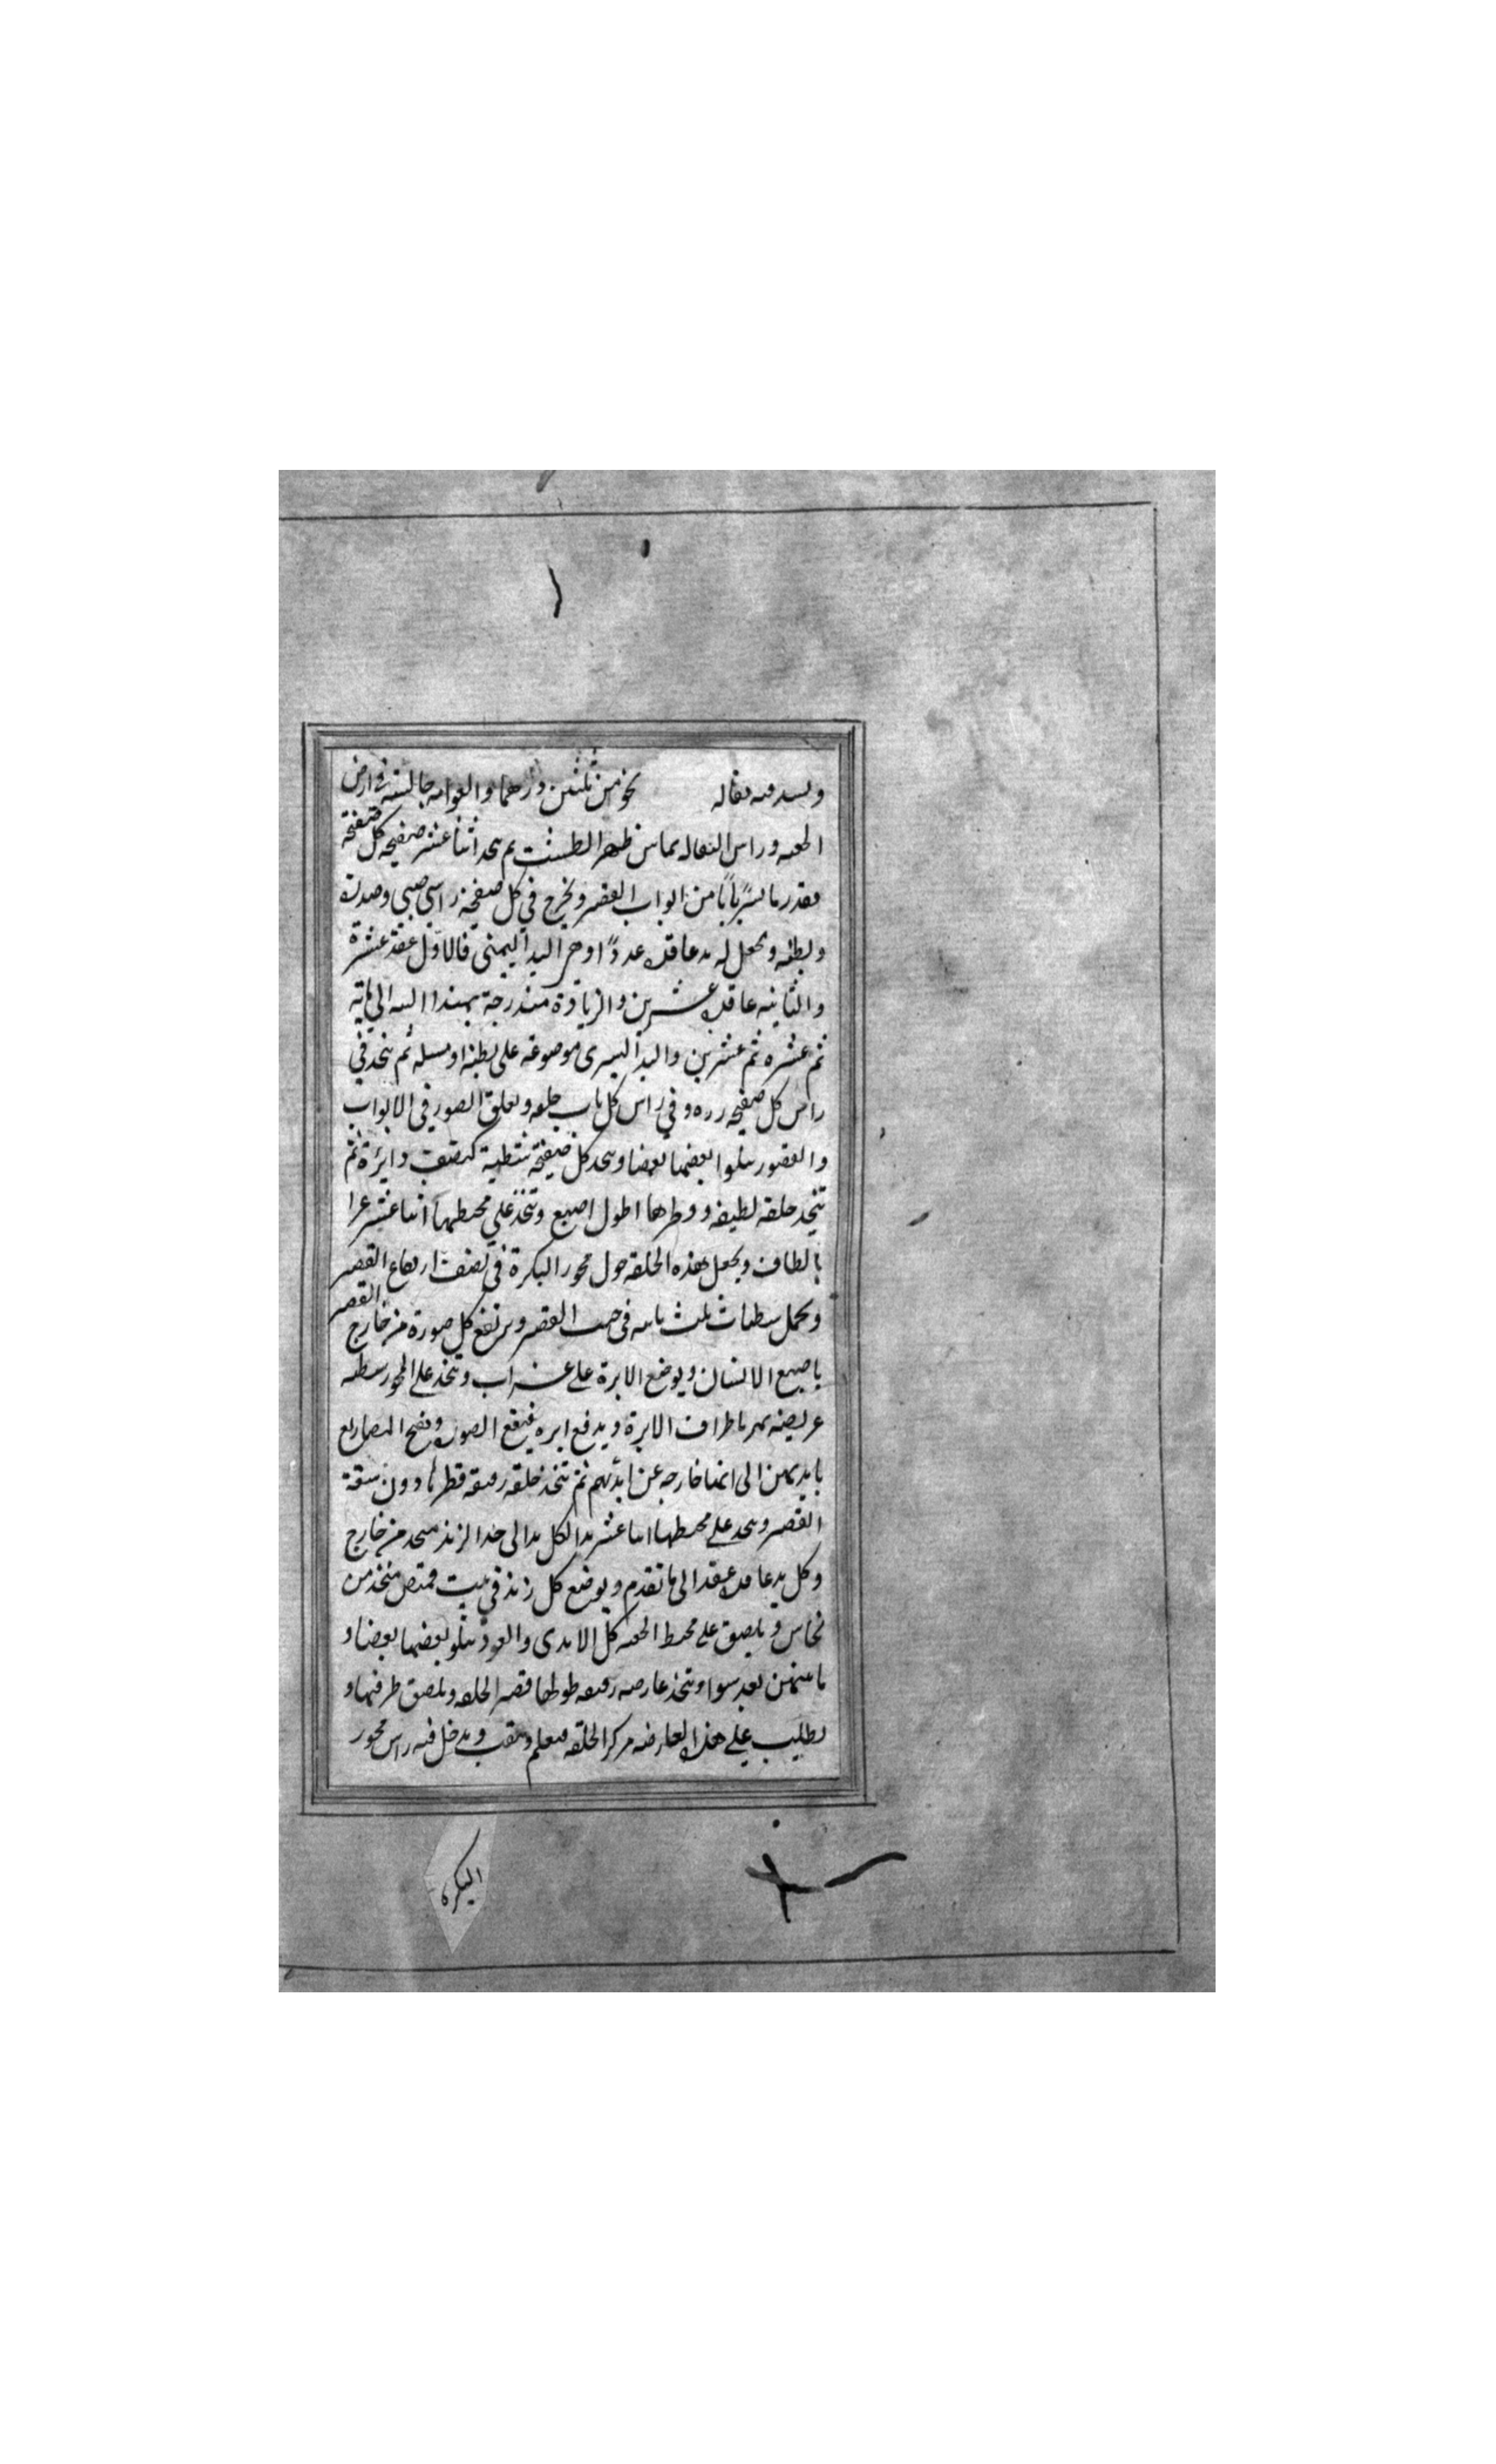 ويشد فيه ثقاله نحو من ثلثين درهما والعوامه جالسة في ارض
الجعبه وراس الثقاله يماس ظهر الطست ثم يتخذ اثنا عشر صفيحه كل صفيحة
بقدر ما يستر بابا من ابواب القصر ويخرج في كل صفيحة راس صبي وصدره
وبطنه ويجعل له يد عاقده عددا وهي اليد اليمنى فالاول عقد عشرة
والثانيه عاقده عشرين والزيادة مندرجة بهذا الى مايه
ثم عشره ثم عشرين واليد اليسرى موضوعه على بطنه او مسبله ثم يتخذ في
راس كل صفيحه زره وفي راس كل باب حلقه وتعلق الصور في الابواب
والعقود يتلوا بعضها بعضا ويتخذ كل صفيحة شظية كنصف دائرة ثم
تتخذ حلقه لطيفه وقطرها اطول اصبع وتتخذ على محيطها اثنا عشر
بالطاف ويجعل هذه الحلقه حول محور البكرة في نصف ارتفاع القصر
ويحمل شظيات ثلث في القصر ويرتفع كل صورة من خارج القصر
باصبع الانسان ويوضع الابرة على وتتخذ على المحور شظيه
عريضه تمر باطراف الابرة ويدفع ابره فيقع الصوره
بايديهن الى خارجه عن ايديهم ثم تتخذ حلقه رقيقه قطرها دون سعة
القصر ويتخذ على محيطها اثنا عشر يدا لكل يد الى حد الزند يتخذ من خارج
وكل يد عاقده عقدا الى ما تقدم ويوضع كل زند في بيت قميص متخذ من
نحاس ويلصق على محيط الجعبه كل الايدى والعقود يتلو بعضها بعضا و
ما بينهن بعد سوا وتتخذ عارضه رقيقه طولها قطر الحلقه ويلصق طرفيها و
يطلب على هذا العارضه مركز الحلقه فيعلم ويثقب ويدخل فيه راس محور
البكره